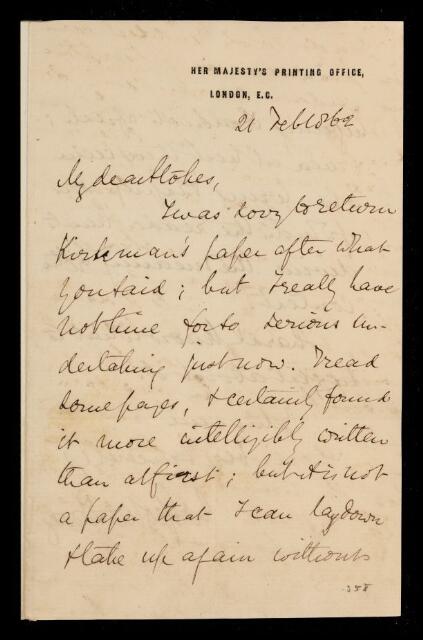 HER MAJESTY'S PRINTING OFFICE,
LONDON, E.C.
21 Feb 1862
My dear Stokes,
I was sorry to return
Kirkman's paper after what
you said; but I really have
not time for so serious un-
dertaking just now. I read
some pages, & certainly found
it more intelligibly written
than at first; but it is not
a paper that I can lay down
& take up again without
358